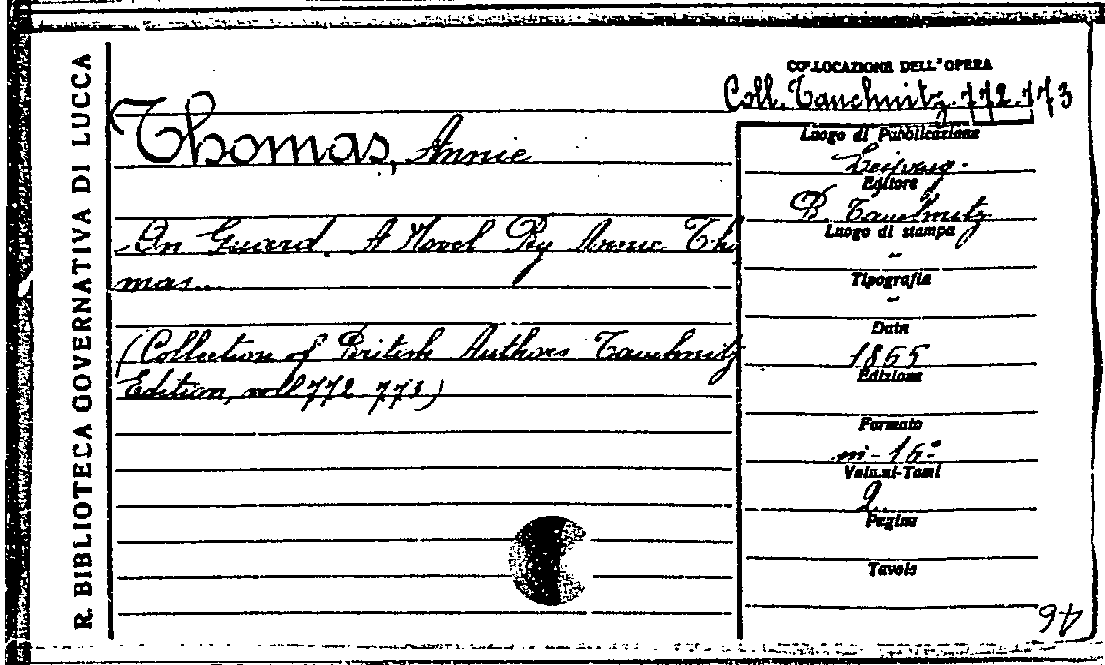 R. BIBLIOTECA GOVERNATIVA DI LUCCA
COLLOCAZIONE DELL'OPERA
Coll. Tauchnitz 772.773
Thomas, Annie
On Guard. A Novel By Annie Tho
mas...
(Collection of British Authors Tauchnitz
Edition, voll 772-773)
Luogo di Pubblicazione
Leipzig.
Editore
B. Tauchnitz
Luogo di stampa
"
Tipografia
"
Data
1865
Edizione
Formato
in-16°
Volumi-Tomi
2
Pagine
Tavole
46